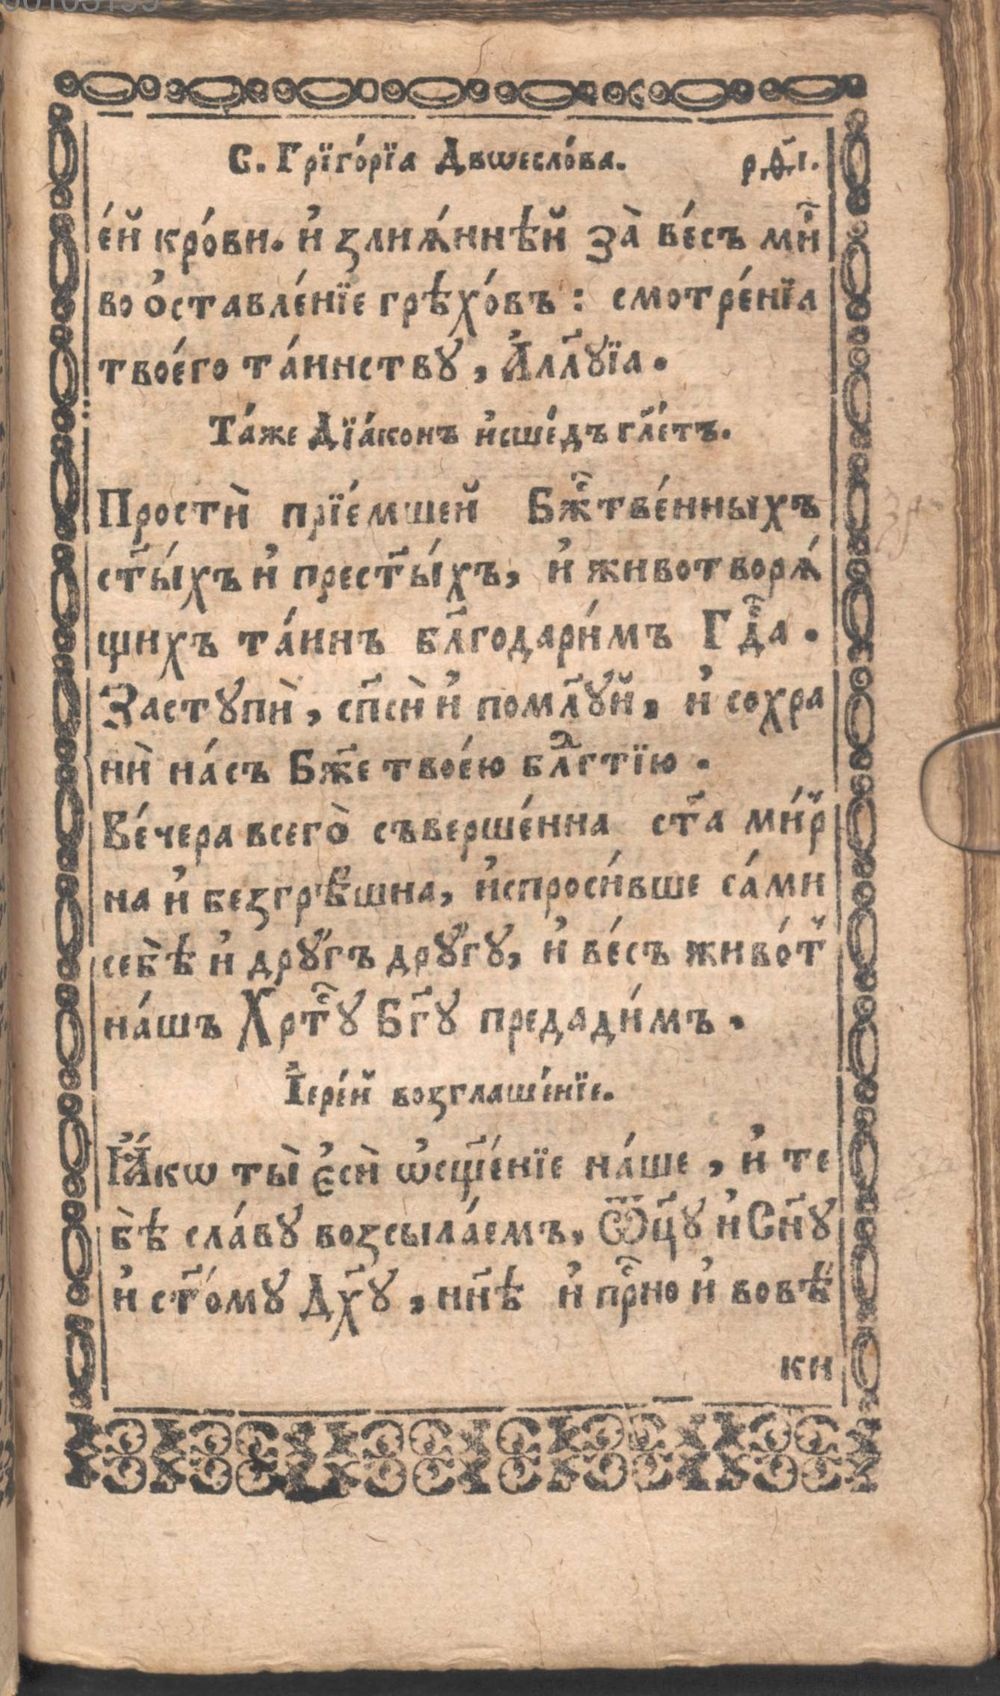 С. Грїго́рїа Двѡесло́ва. р҃ѳ҃і.
е́й кро́ви. и҆ ѕлиѧ́ннѣй за̀ ве́съ ми́
во ѻ҆ставле́нїе грѣхо́въ : смотре́нїа
твоего̀ та́инству , А҆ллꙋ҃їа .
Та́же Дїа́конъ и҆сше́дъ гл҃етъ.
Прости̇̀ прїе́мшей Бж҇тве́нныхъ
ст҃ы́хъ и҆ прест҃ы́хъ, и҆ животворѧ́
щихъ та́инъ бл҃годари́мъ Гд҇а .
Застꙋпи̇̀ , сп҃си̇̀ и҆ помл҃ꙋй, и҆ сохра
ни̇̀ на́съ Бж҃е твое́ю бл҃гⷣтїю .
Ве́чера всего̀ съверше́нна ст҃а ми́р
на и҆ беѕгрѣ́шна, и҆спроси́вше са́ми
себѣ̀ и҆ дрꙋ́гъ дрꙋ́гꙋ, и҆ ве́съ живо́т
на́шъ Хрт҇ꙋ̀ Бг҃ꙋ предади́мъ .
І҆ере́й воѕглаше́нїе.
Ꙗ҆́кѡ ты̀ є҆си̇̀ ѡ҆сщ҃е́нїе на́ше , и҆ те
бѣ̀ сла́вꙋ воѕсыла́емъ, Ѿц҃ꙋ и҆ Сн҃ꙋ
и҆ ст҃о́мꙋ Дх҃ꙋ , нн҃ѣ и҆ пр҇но и҆ вовѣ́
ки